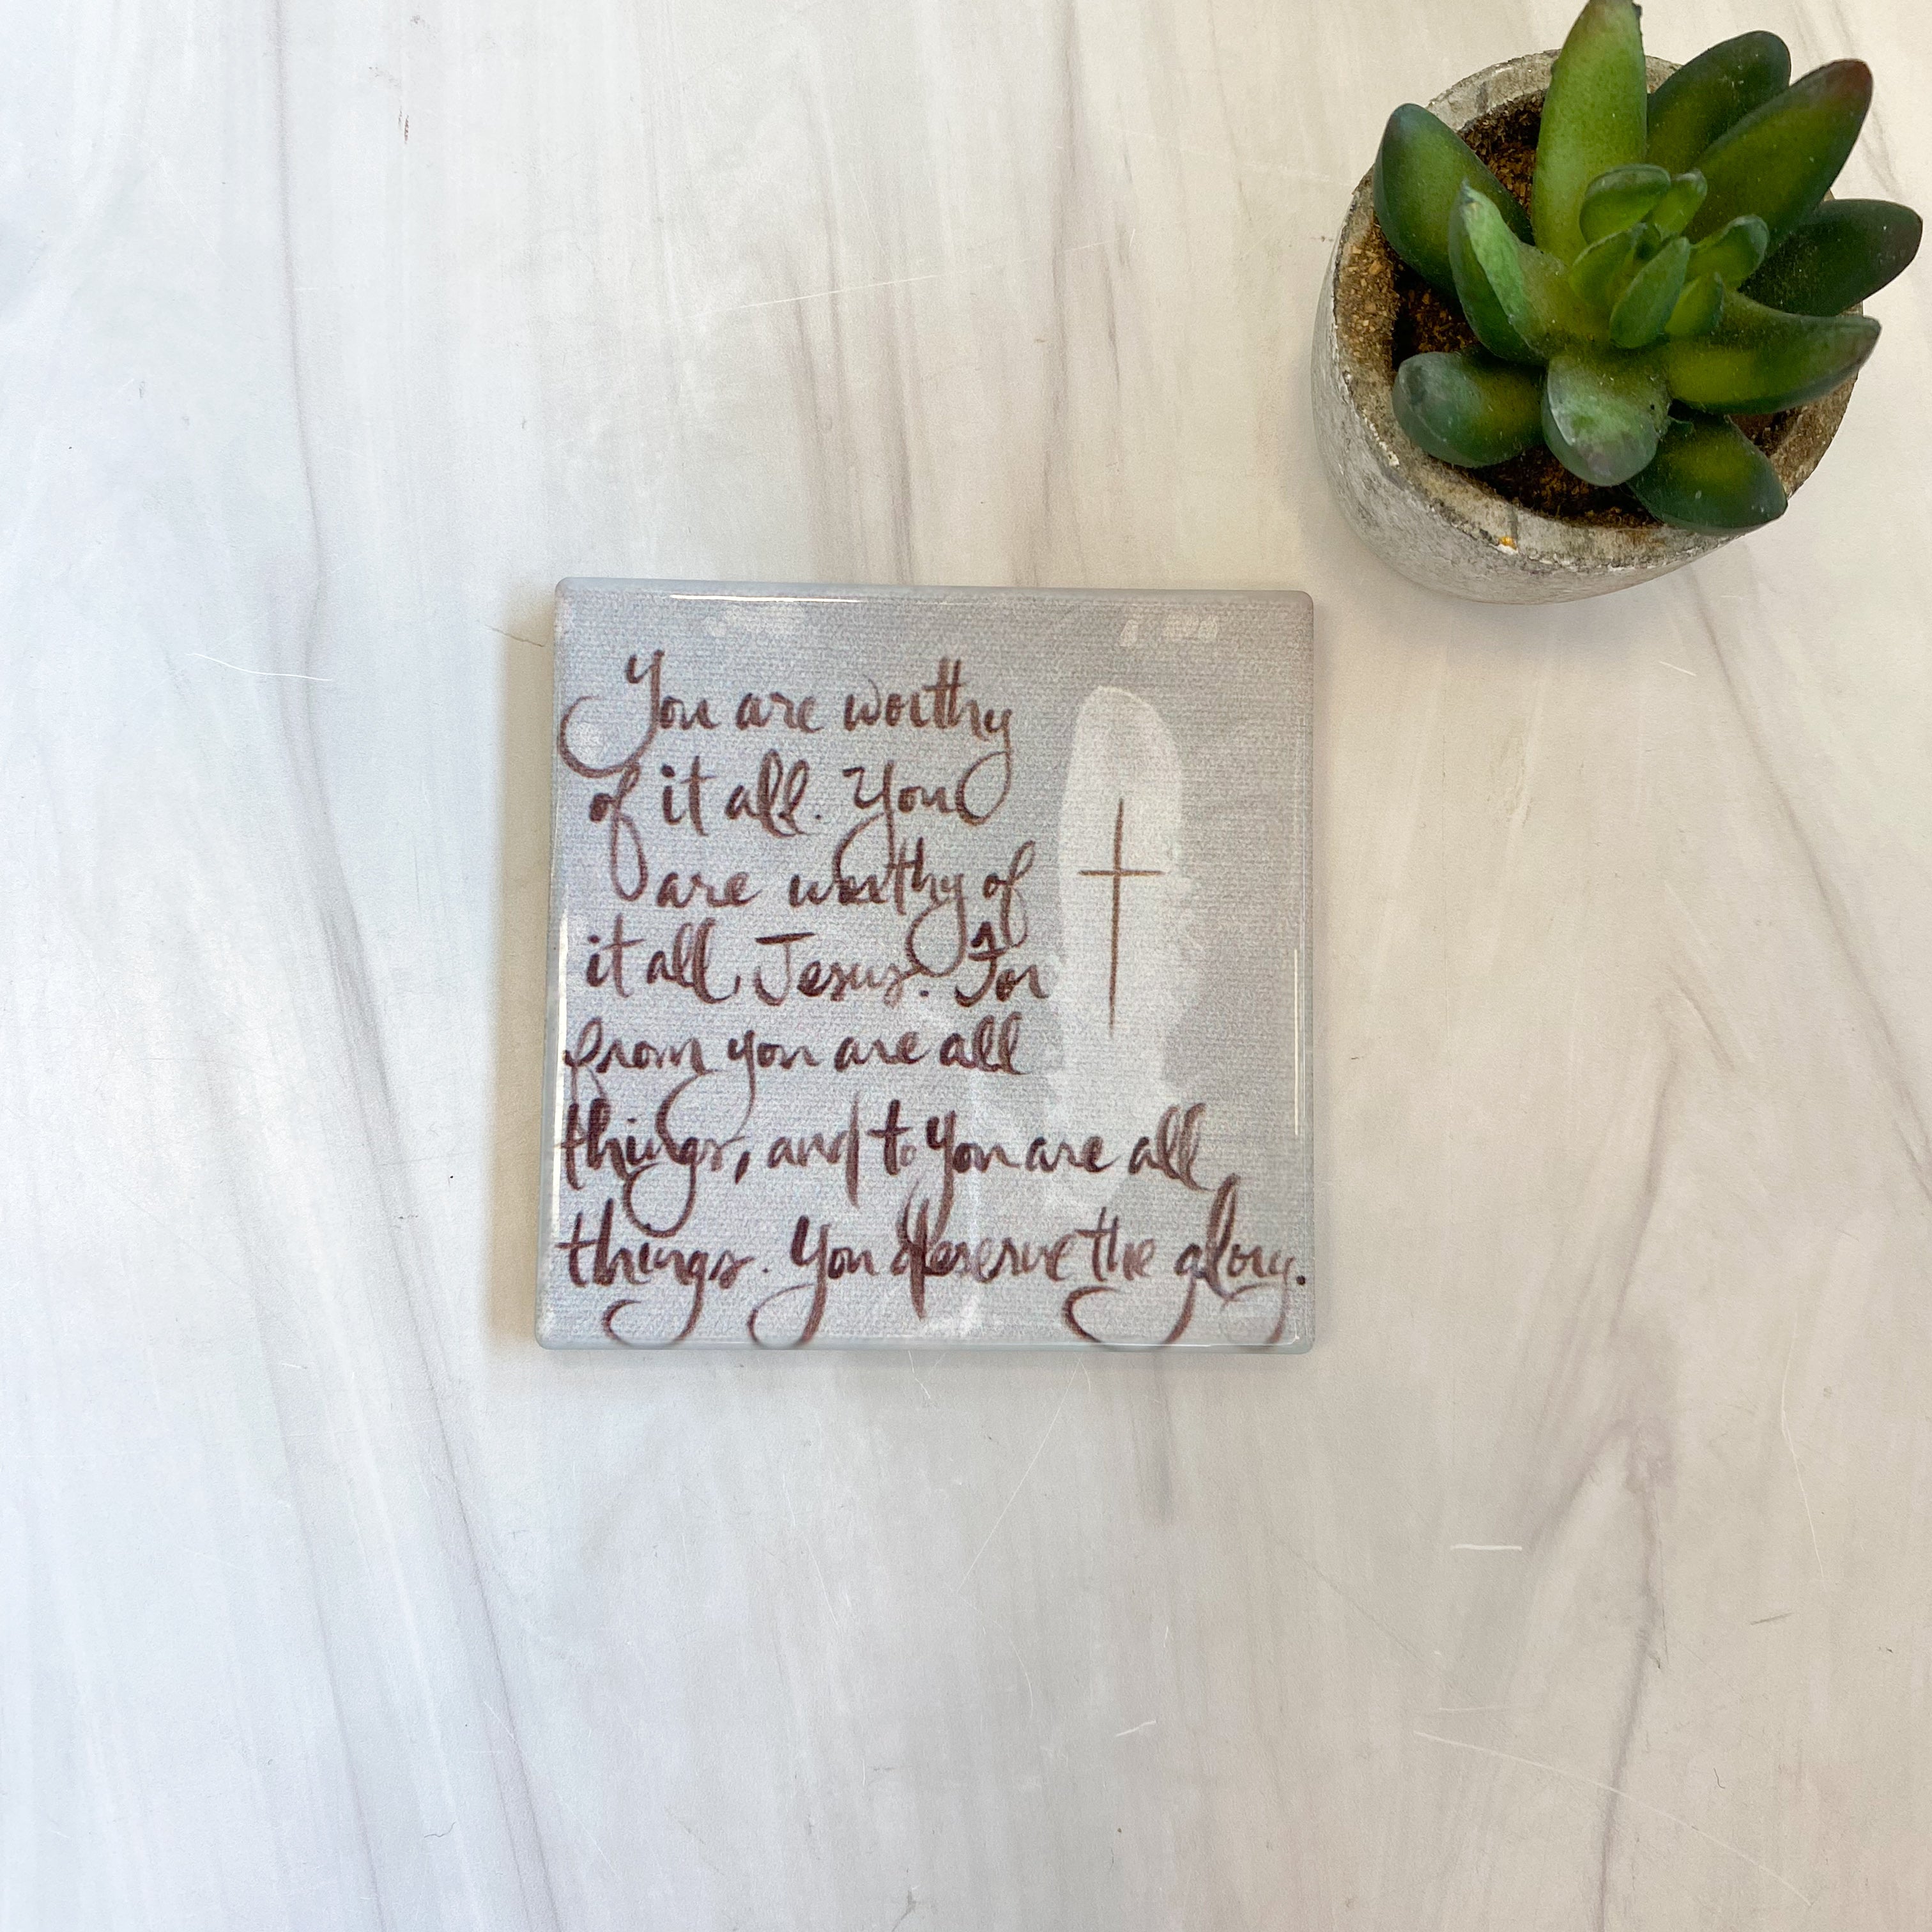 You are worthy
of it all. You
are worthy of
it all, Jesus. For
from you are all
things, and to you are all
things. You deserve the glory.